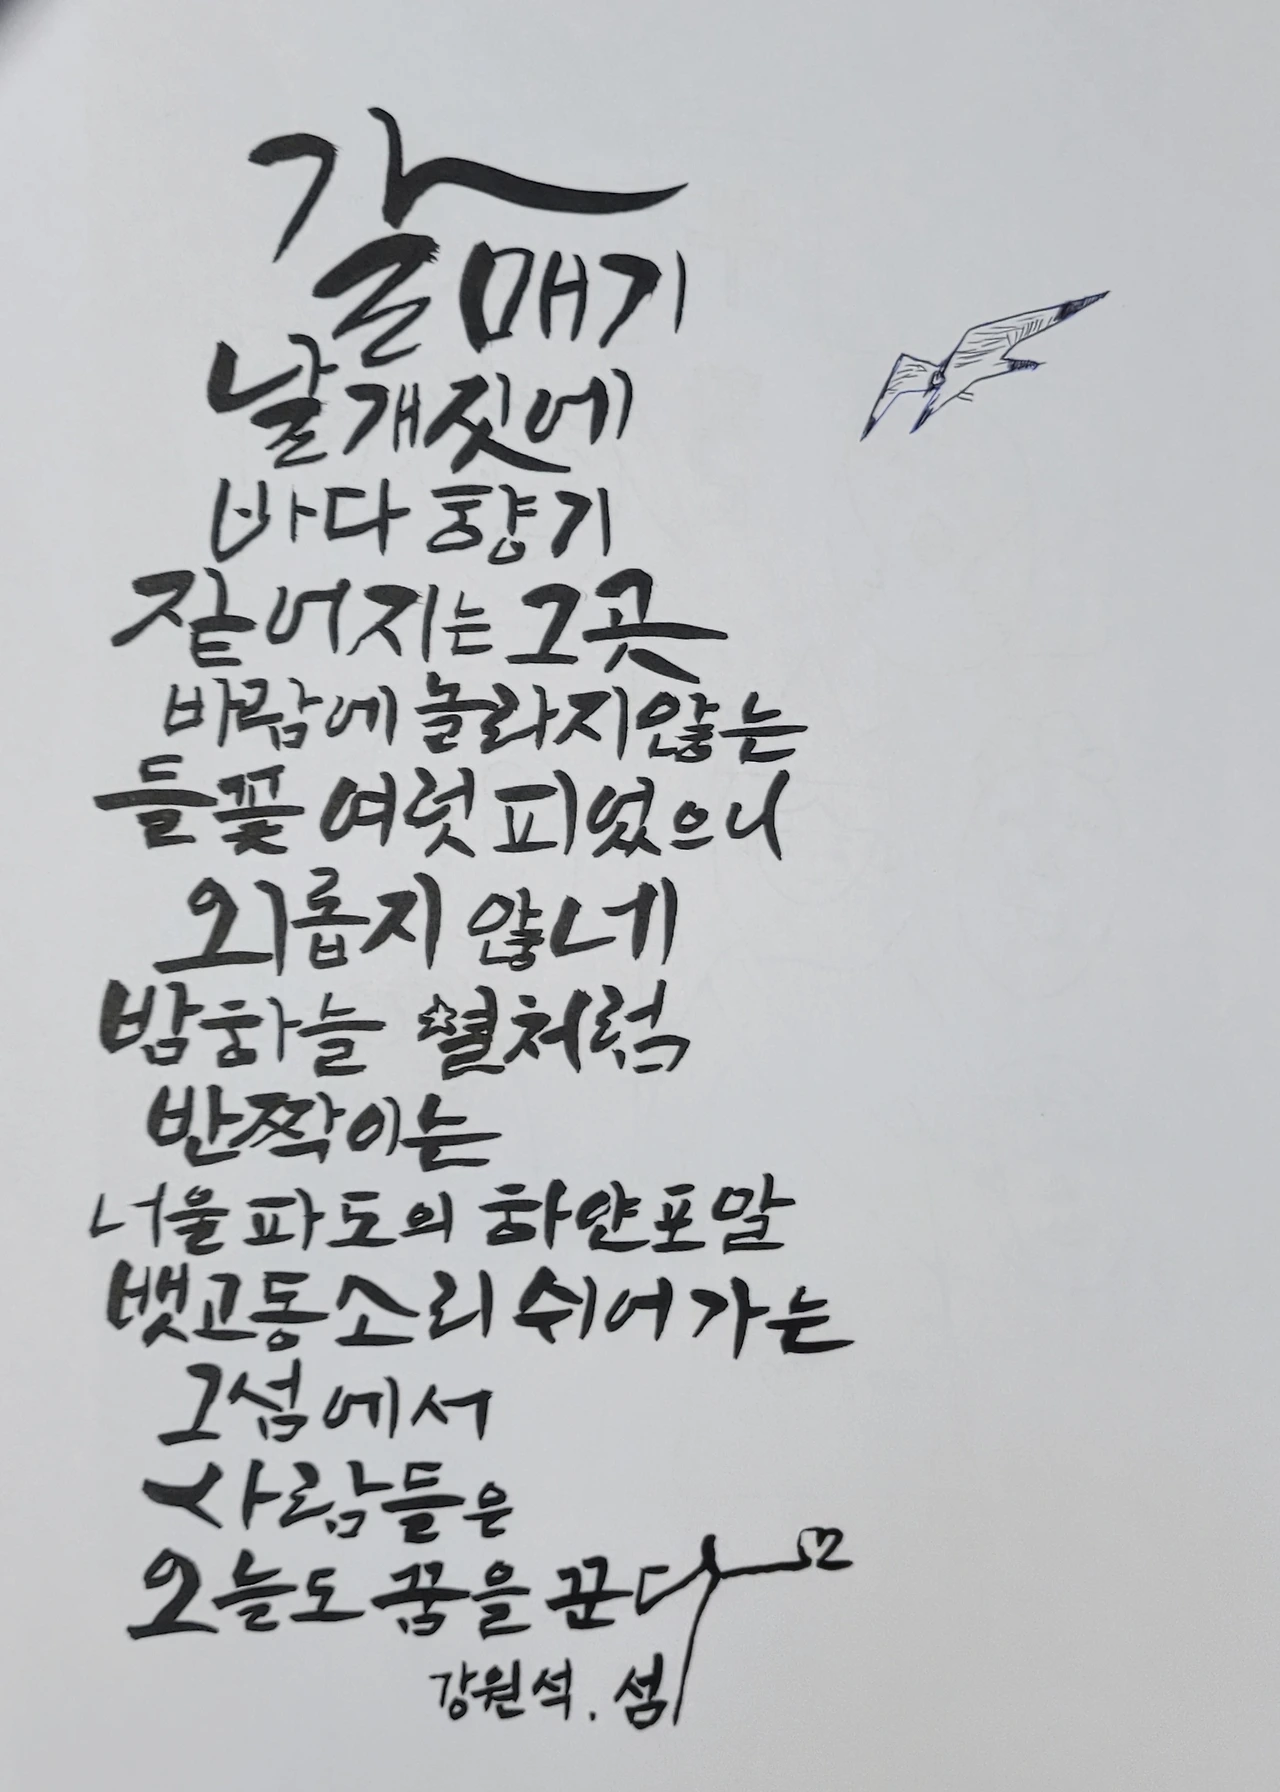 갈매기
날개짓에
바다 향기
짙어지는 그곳
바람에 놀라지않는
들꽃 여럿 피었으니
외롭지 않네
밤하늘 별처럼
반짝이는
너울 파도의 하얀포말
뱃고동소리 쉬어가는
그섬에서
사람들은
오늘도 꿈을 꾼다
강원석. 섬